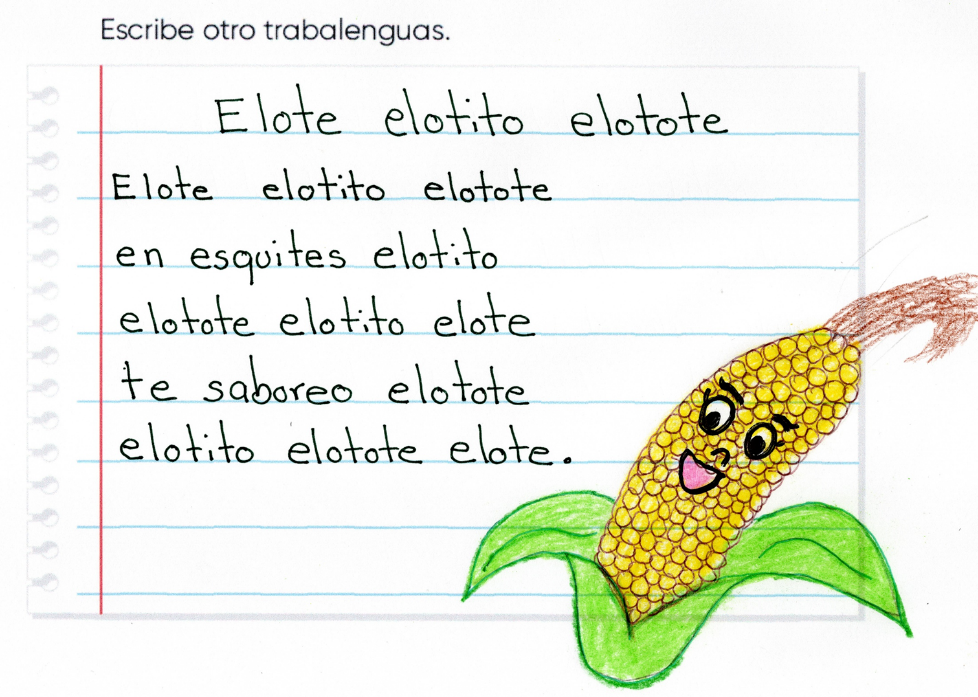 Escribe otro trabalenguas.
Elote elotito elotote
Elote elotito elotote
en esquites elotito
elotote elotito elote
te saboreo elotote
elotito elotote elote.